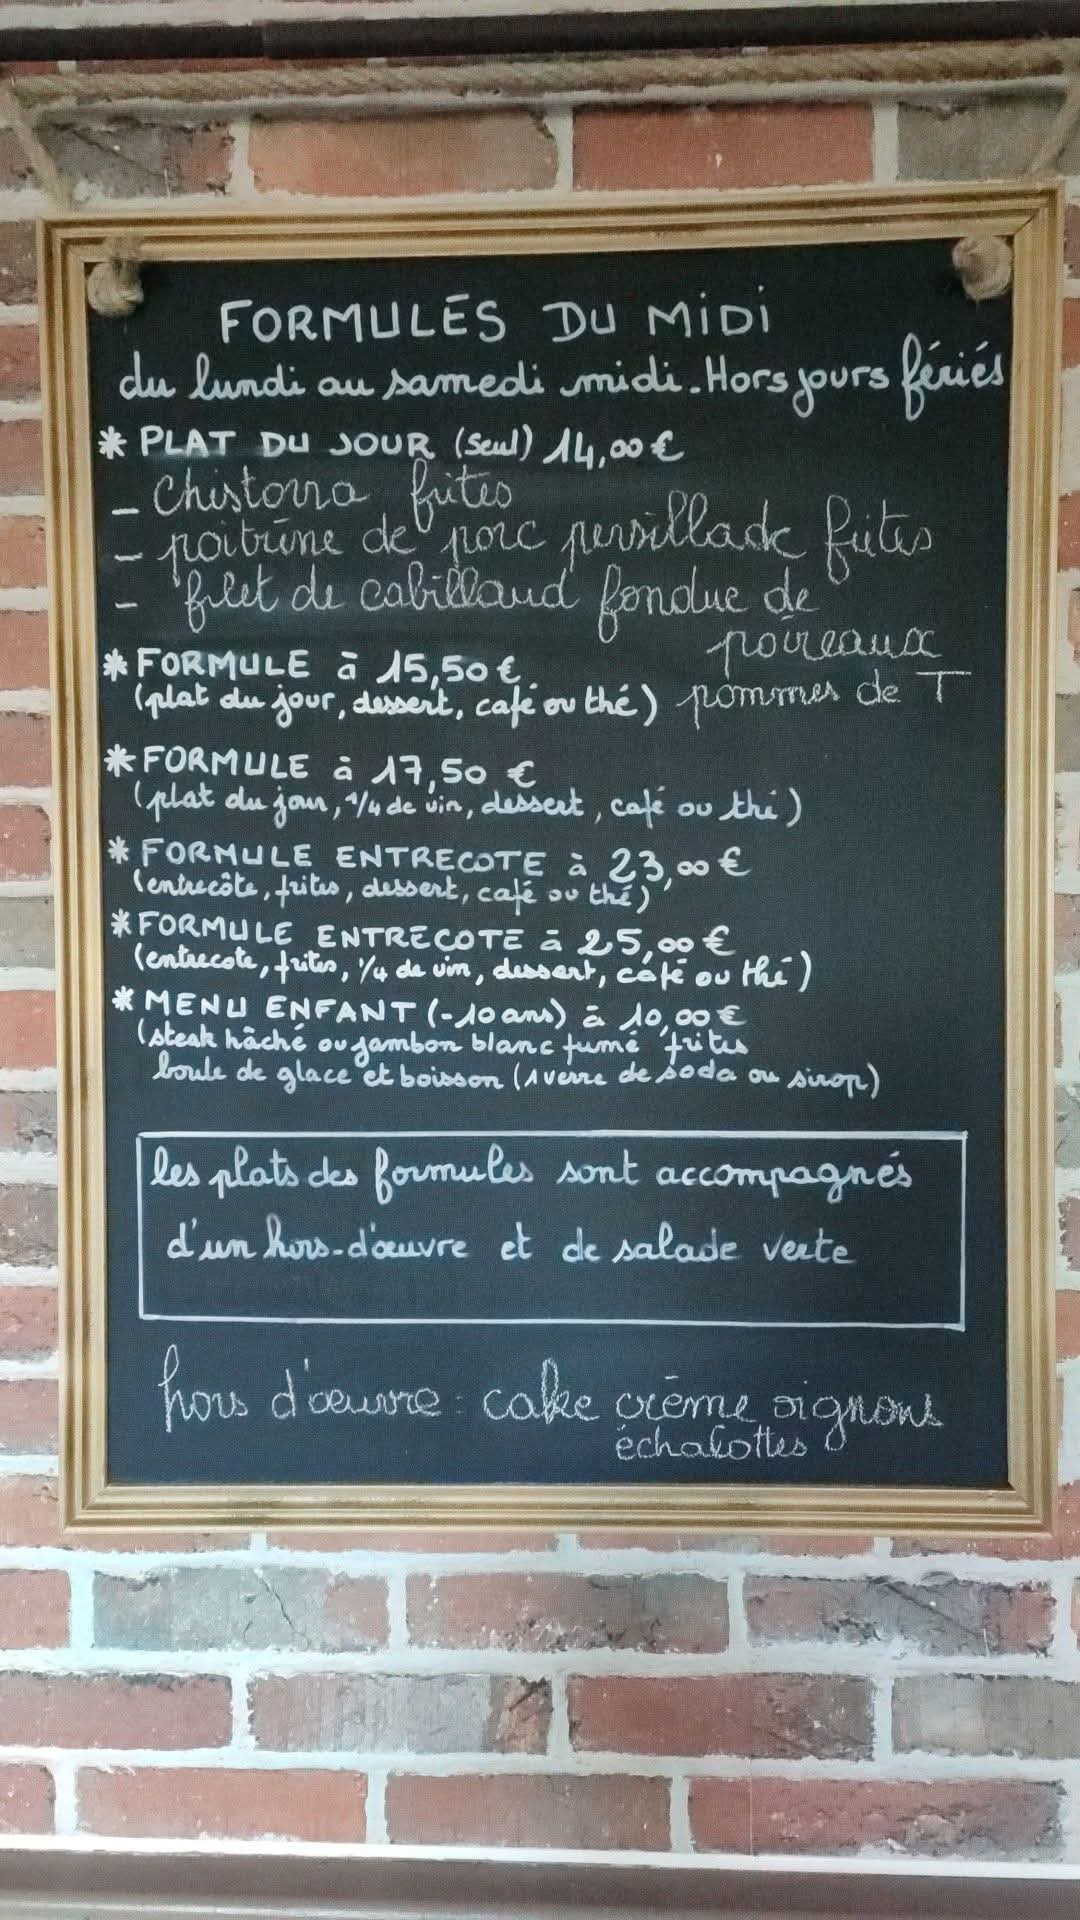 FORMULES DU MIDI
du lundi au samedi midi. Hors jours fériés
* PLAT DU JOUR (seul) 14,00 €
- Chistorra frites
- poitrine de porc persillade frites
- filet de cabillaud fondue de
poireaux
pommes de T
* FORMULE à 15,50 €
(plat du jour, dessert, café ou thé)
* FORMULE à 17,50 €
(plat du jour, 1/4 de vin, dessert, café ou thé)
* FORMULE ENTRECOTE à 23,00 €
(entrecôte, frites, dessert, café ou thé)
* FORMULE ENTRECOTE à 25,00 €
(entrecote, frites, 1/4 de vin, dessert, café ou thé)
* MENU ENFANT (-10 ans) à 10,00 €
(steak hâché ou jambon blanc fumé frites
boule de glace et boisson (1 verre de soda ou sirop)
les plats des formules sont accompagnés
d'un hors-d'œuvre et de salade verte
hors d'œuvre : cake crème oignons
échalottes